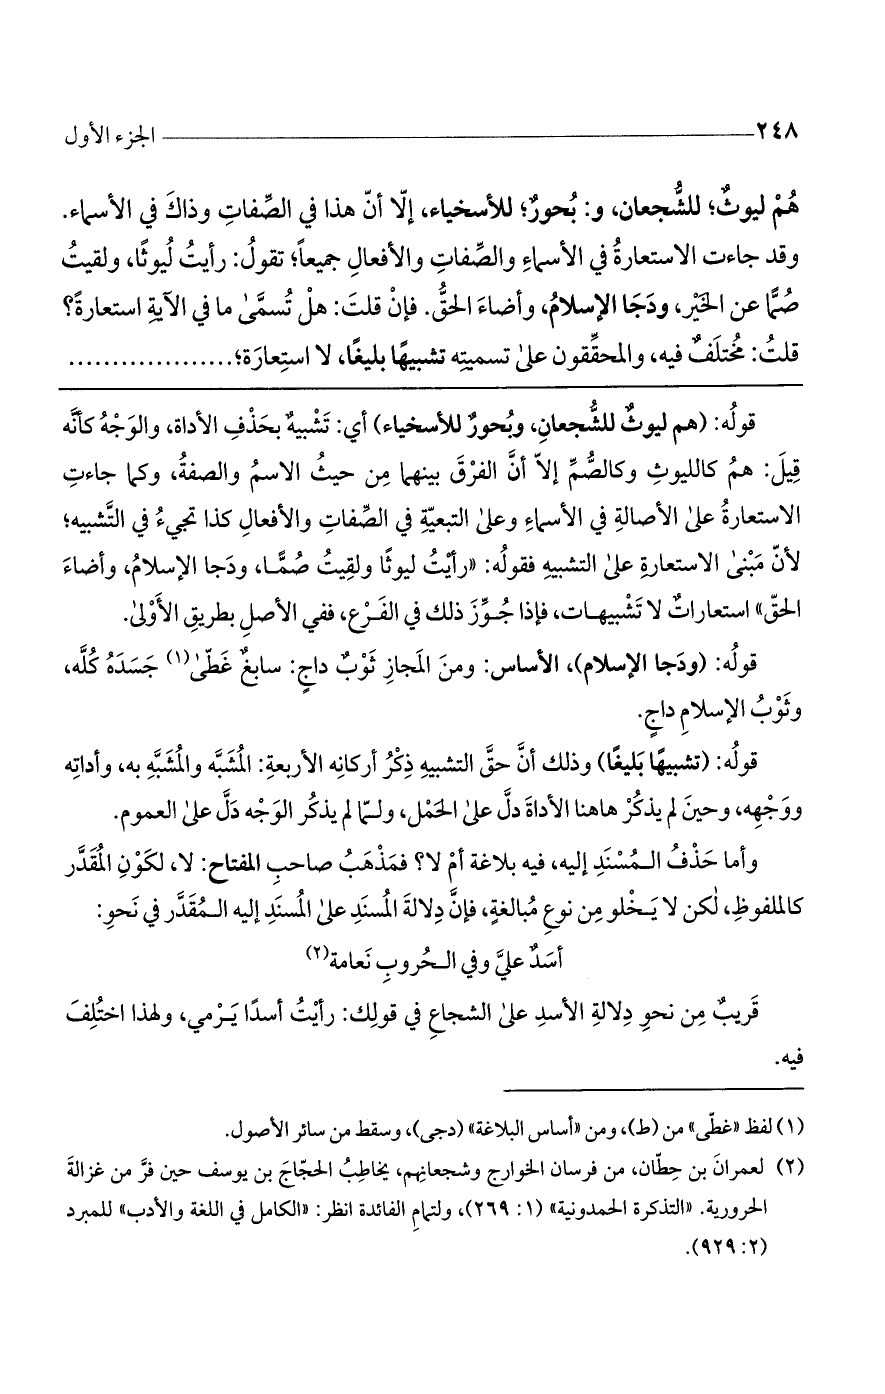 ٢٤٨ الجزء الأول
هُمْ ليوثٌ؛ للشُّجعان، و: بُحورٌ؛ للأسخياء، إلّا أنّ هذا في الصِّفاتِ وذاكَ في الأسماء.
وقد جاءت الاستعارةُ في الأسماءِ والصِّفاتِ والأفعالِ جميعاً؛ تقولُ: رأيتُ لُيوثًا، ولقيتُ
صُمًّا عن الخَيْرِ، ودَجَا الإسلامُ، وأضاءَ الحقُّ. فإنْ قلتَ: هلْ تُسمَّىٰ ما في الآيةِ استعارةً؟
قلتُ: مُختلَفٌ فيه، والمحقِّقون علىٰ تسميتِه تشبيهًا بليغًا، لا استِعارَة؛...................
قولُه: (هم ليوثٌ للشُّجعانِ، وبُحورٌ للأسخياء) أي: تَشْبيهٌ بحَذْفِ الأداة، والوَجْهُ كأنَّه
قِيلَ: همُ كالليوثِ وكالصُّمِّ إلاّ أنَّ الفرْقَ بينهما مِن حيثُ الاسمُ والصفةُ، وكما جاءتِ
الاستعارةُ علىٰ الأصالةِ في الأسماءِ وعلىٰ التبعيّةِ في الصِّفاتِ والأفعالِ كذا تجيءُ في التَّشبيه؛
لأنّ مَبْنىٰ الاستعارةِ علىٰ التشبيهِ فقولُه: «رأيْتُ ليوثًا ولقِيتُ صُمًّا، ودَجا الإسلامُ، وأضاءَ
الحقّ» استعاراتٌ لا تَشْبيهات، فإذا جُوِّزَ ذلك في الفَرْعِ، ففي الأصلِ بطريقِ الأَوْلىٰ.
قولُه: (ودَجا الإسلام)، الأساس: ومنَ المَجازِ ثَوْبٌ داجٍ: سابغٌ غَطّىٰ(١) جَسَدَهُ كُلَّه،
وثَوْبُ الإسلامِ داجٍ.
قولُه: (تشبيهًا بَليغًا) وذلك أنَّ حقَّ التشبيهِ ذِكْرُ أركانِه الأربعةِ: المُشَبَّه والمُشَبَّهِ به، وأداتِه
ووَجْهِه، وحينَ لم يذكُرْ هاهنا الأداةَ دلَّ علىٰ الحَمْل، ولـمّا لم يذكُر الوَجْه دَلَّ علىٰ العموم.
وأما حَذْفُ الـمُسْنَدِ إليه، فيه بلاغة أمْ لا؟ فمَذْهَبُ صاحبِ المفتاح: لا، لكَوْنِ المُقَدَّر
كالملفوظِ، لٰكن لا يَـخْلو مِن نوعِ مُبالغةٍ، فإنَّ دِلالةَ المُسنَدِ علىٰ المُسنَدِ إليه الـمُقَدَّر في نَحوِ:
أسَدٌ عليَّ وفي الـحُروبِ نَعامة(٢)
قَريبٌ مِن نحوِ دِلالةِ الأسدِ علىٰ الشجاعِ في قولِك: رأيْتُ أسدًا يَـرْمي، ولهذا اختُلِفَ
فيه.
(١) لفظ «غطّى» من (ط)، ومن «أساس البلاغة» (دجى)، وسقط من سائر الأصول.
(٢) لعمرانَ بن حِطّان، من فرسان الخوارج وشجعانِهم، يخاطِبُ الحجّاجَ بن يوسف حين فرَّ من غزالةَ
الحرورية. «التذكرة الحمدونية» (١: ٢٦٩)، ولتمامِ الفائدة انظر: «الكامل في اللغة والأدب» للمبرد
(٢: ٩٢٩).